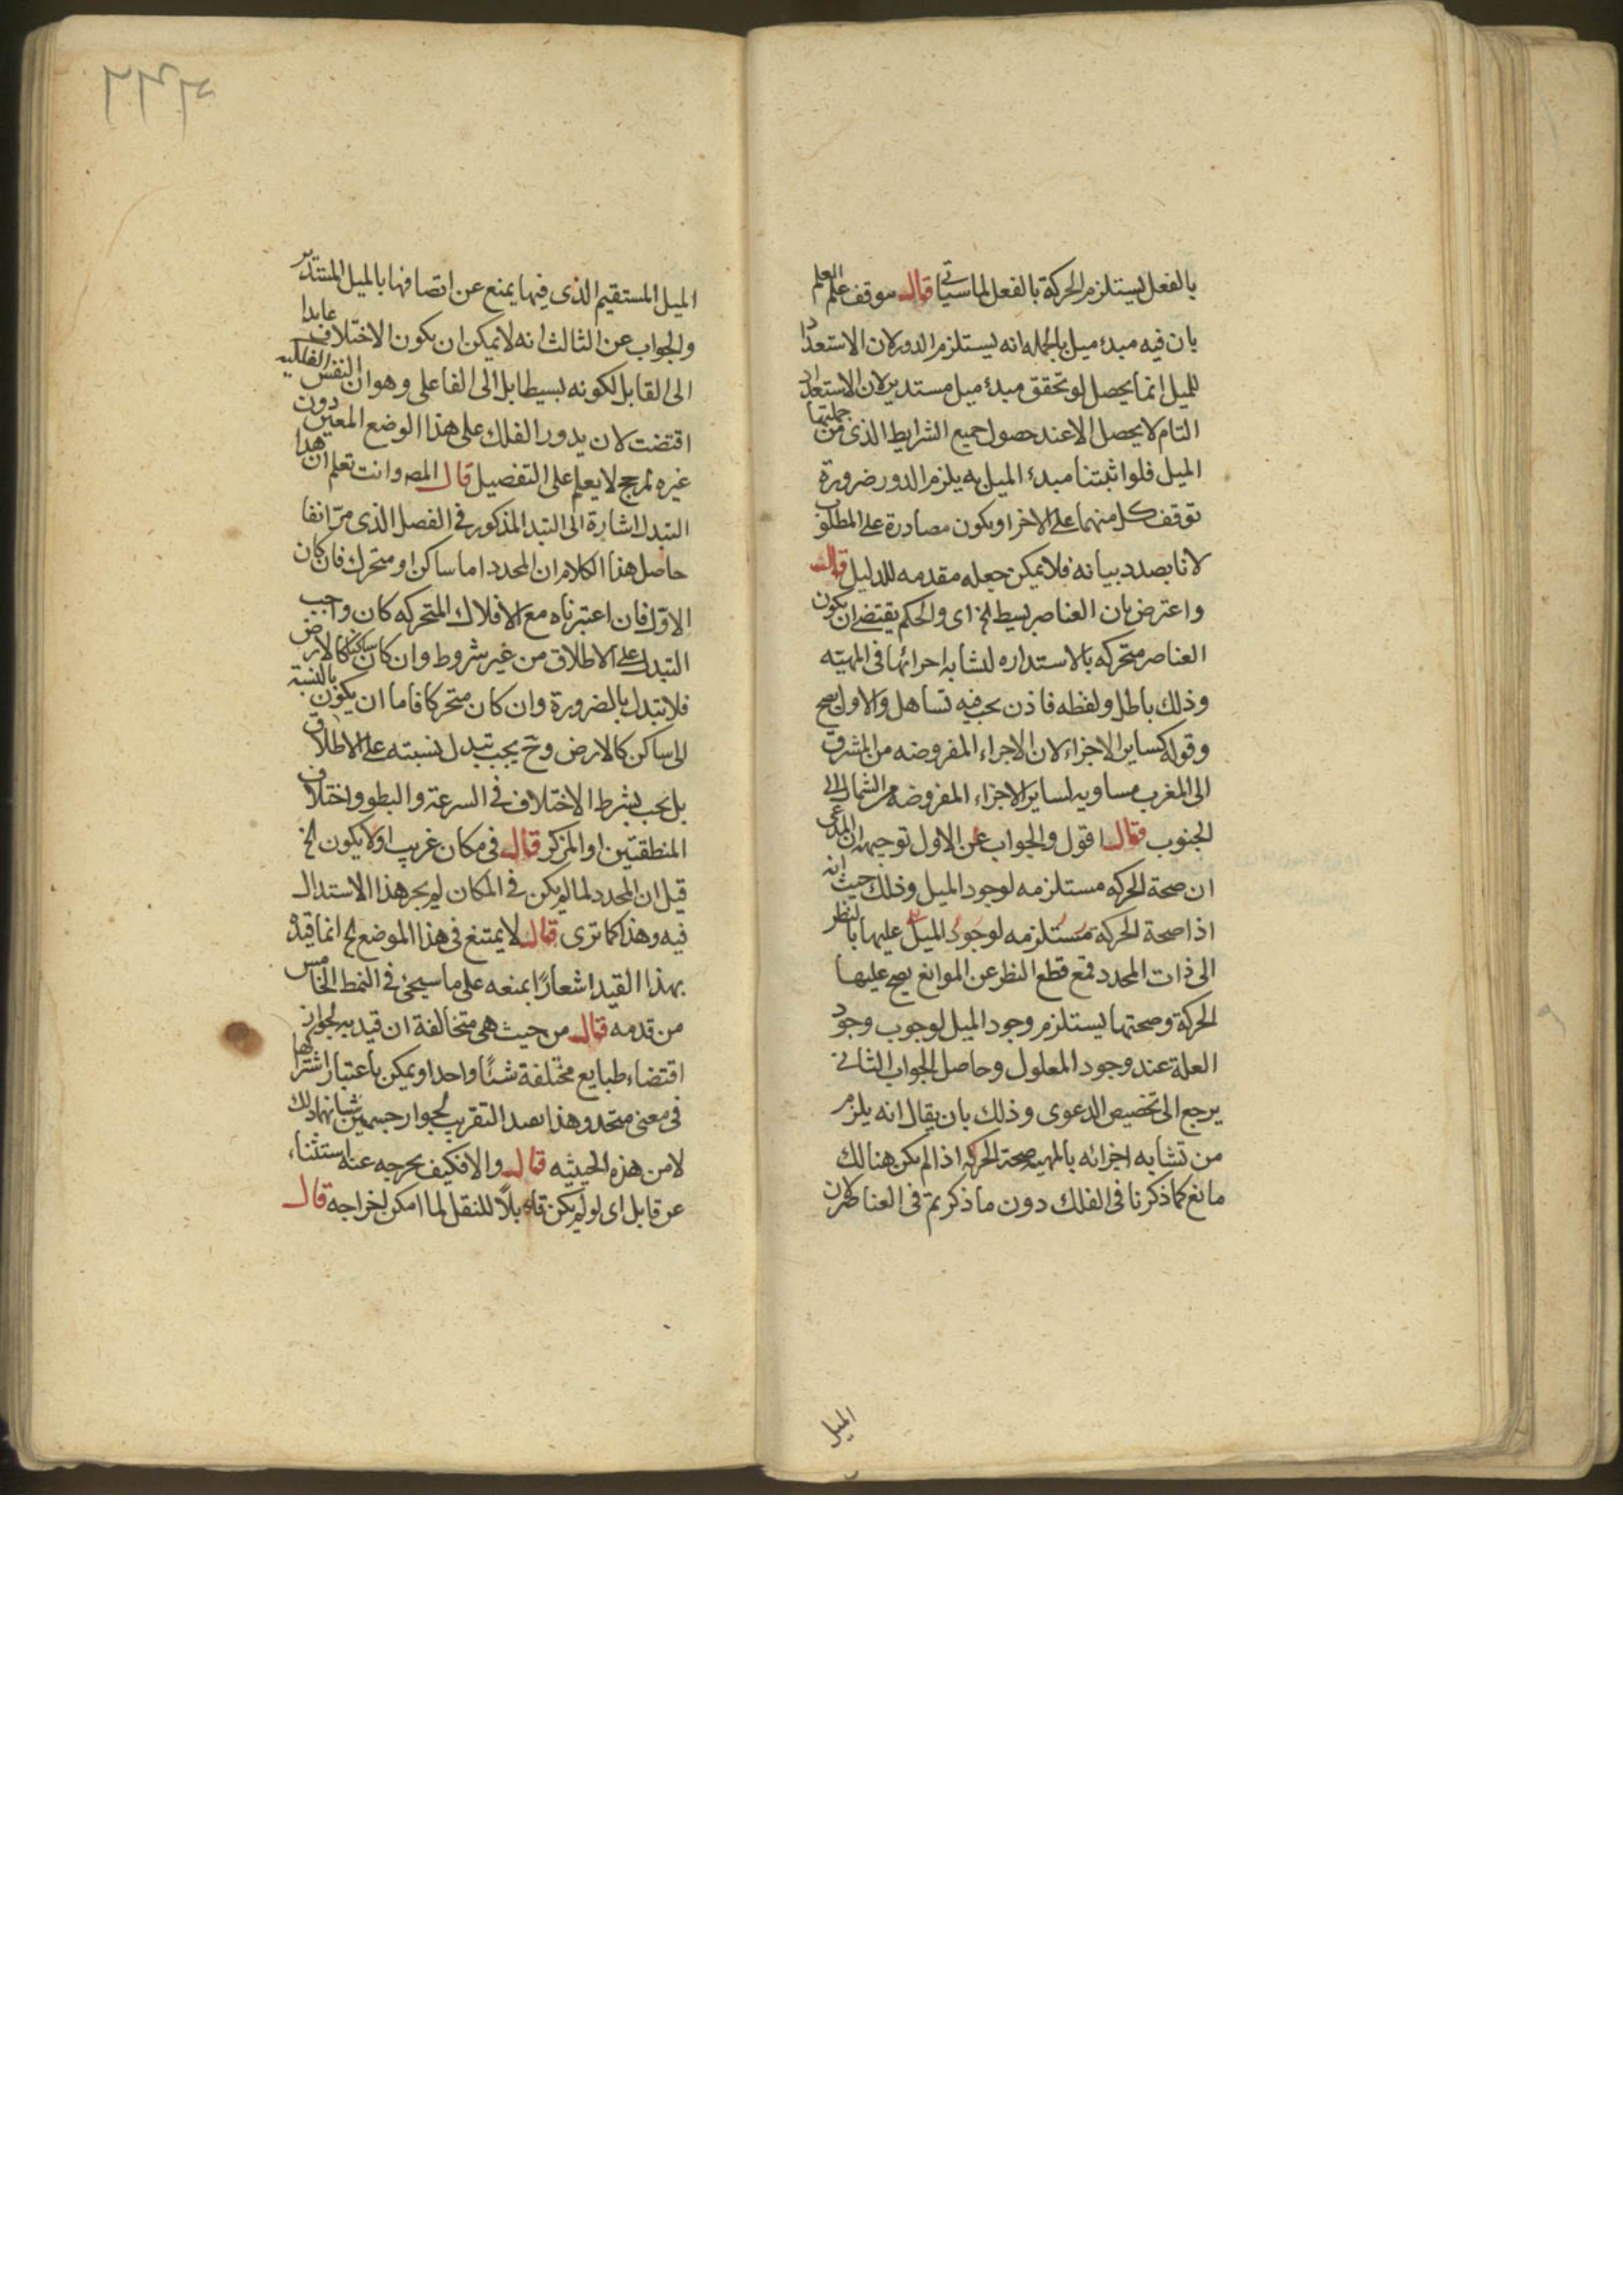 بالفعل يستلزم الحركة بالفعل لما سيأتى قال موقف على العلم
بان فيه مبدء ميل بالجمله انه يستلزم الدور لان الاستعداد
للميل انما يحصل لو تحقق مبدء ميل مستدير لان الاستعداد
التام لا يحصل الا عند حصول جميع الشرايط الذى من جملتها
الميل فلو اثبتنا مبدء الميل به يلزم الدور ضرورة
توقف كل منهما على الاخر او يكون مصادرة على المطلوب
لانا بصدد بيانه فلا يمكن جعله مقدمه للدليل قال
واعترض بان العناصر بسيط الخ اى والحكم يقتضى ان يكون
العناصر متحركه بالاستداره لتشابه اجزائها فى المهيته
وذلك باطل ولفظه فاذن يجب فيه تساهل والاولى يصح
وقوله كساير الاجزاء لان الاجزاء المفروضه من المشرق
الى المغرب مساويه لساير الاجزاء المفروضه من الشمال الى
الجنوب قال اقول والجواب عن الاول توجيهه ان المدعى
ان صحة الحركه مستلزمه لوجود الميل وذلك حيث انه
اذا صحة الحركة مستلزمه لوجود الميل عليها بالنظر
الى ذات المحدد فمع قطع النظر عن الموانع يصح عليها
الحركة وصحتها يستلزم وجود الميل لوجوب وجود
العلة عند وجود المعلول وحاصل الجواب الثانى
يرجع الى تخصيص الدعوى وذلك بان يقال انه يلزم
من تشابه اجزائه بالمهيه صحة الحركه اذا لم يكن هنالك
مانع كما ذكرنا فى الفلك دون ما ذكرتم فى العناصر لان
الميل
الميل المستقيم الذى فيها يمنع عن اتصافها بالميل المستدير
والجواب عن الثالث انه لا يمكن ان يكون الاختلاف عايدا
الى القابل لكونه بسيطا بل الى الفاعلى وهو ان النفس الفلكيه
اقتضت لان يدور الفلك على هذا الوضع المعين دون
غيره لمرجح لا يعلم على التفصيل قال المص وانت تعلم ان هذا
التبدل اشارة الى التبدل المذكور فى الفصل الذى مر انفا
حاصل هذا الكلام ان المحدد اما ساكن او متحرك فان كان
الاول فان اعتبرناه مع الافلاك المتحركه كان واجب
التبدل على الاطلاق من غير شروط وان كان ساكنا كالارض
فلا تبدل بالضرورة وان كان متحركا فاما ان يكون بالنسبة
الى ساكن كالارض وح يجب تبدل نسبته على الاطلاق
بل يجب بشرط الاختلاف فى السرعة والبطو واختلاف
المنطقتين او المركز قال فى مكان غريب اولا يكون الخ
قيل ان المحدد لما لم يكن فى المكان لم يجر هذا الاستدلال
فيه وهذا كما ترى قال لا يمتنع فى هذا الموضع الخ انما قيد
بهذا القيد اشعارًا بمنعه على ما سيجئ فى النمط الخامس
من قدمه قال من حيث هى متخالفة ان قيد به لجواز
اقتضاء طبايع مختلفة شئًا واحدا ويمكن باعتبار اشتراكها
فى معنى متحد وهذا بصدد التقريب لجوار جسمين شانهما ذلك
لا من هذه الحيثيه قال والا فكيف يحرجه عنه استثناء
عن قابل اى لو لم يكن قابلًا للنقل لما امكن اخراجه قال